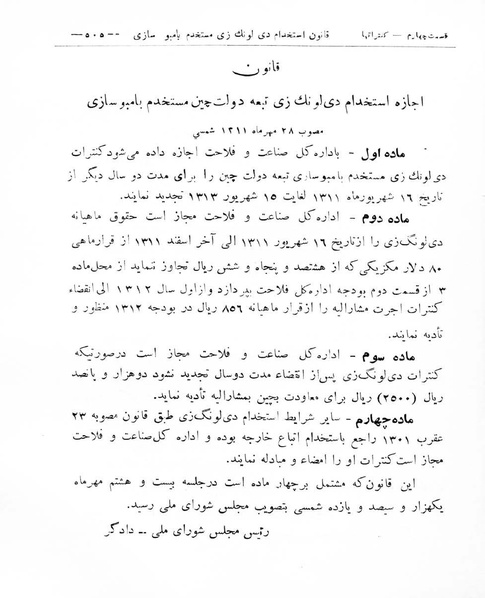 قسمت چهارم — کنتراتها قانون استخدام دی لونک زی مستخدم بامبو سازی —۵۰۵—
قانون
اجازه استخدام دی‌لونک زی تبعه دولت چین مستخدم بامبوسازی
مصوب ۲۸ مهرماه ۱۳۱۱ شمسی
ماده اول - باداره کل صناعت و فلاحت اجازه داده می‌شود کنترات
دی‌لونک زی مستخدم بامبوسازی تبعه دولت چین را برای مدت دو سال دیگر از
تاریخ ۱۶ شهریورماه ۱۳۱۱ لغایت ۱۵ شهریور ۱۳۱۳ تجدید نمایند.
ماده دوم - اداره کل صناعت و فلاحت مجاز است حقوق ماهیانه
دی‌لونک‌زی را ازتاریخ ۱۶ شهریور ۱۳۱۱ الی آخر اسفند ۱۳۱۱ از قرارماهی
۸۰ دلار مکزیکی که از هشتصد و پنجاه و شش ریال تجاوز ننماید از محل ماده
۳ از قسمت دوم بودجه اداره کل فلاحت بپردازد و ازاول سال ۱۳۱۲ الی انقضاء
کنترات اجرت مشارالیه را ازقرار ماهیانه ۸۵۶ ریال در بودجه ۱۳۱۲ منظور و
تأدیه نمایند.
ماده سوم - اداره کل صناعت و فلاحت مجاز است درصورتیکه
کنترات دی‌لونک‌زی پس از انقضاء مدت دوسال تجدید نشود دوهزار و پانصد
ریال (۲۵۰۰) ریال برای معاودت بچین بمشارالیه تأدیه نماید.
ماده چهارم - سایر شرایط استخدام دی‌لونک‌زی طبق قانون مصوبه ۲۳
عقرب ۱۳۰۱ راجع باستخدام اتباع خارجه بوده و اداره کل صناعت و فلاحت
مجاز است کنترات او را امضاء و مبادله نماید.
این قانون که مشتمل برچهار ماده است درجلسه بیست و هشتم مهرماه
یکهزار و سیصد و یازده شمسی بتصویب مجلس شورای ملی رسید.
رئیس مجلس شورای ملی — دادگر